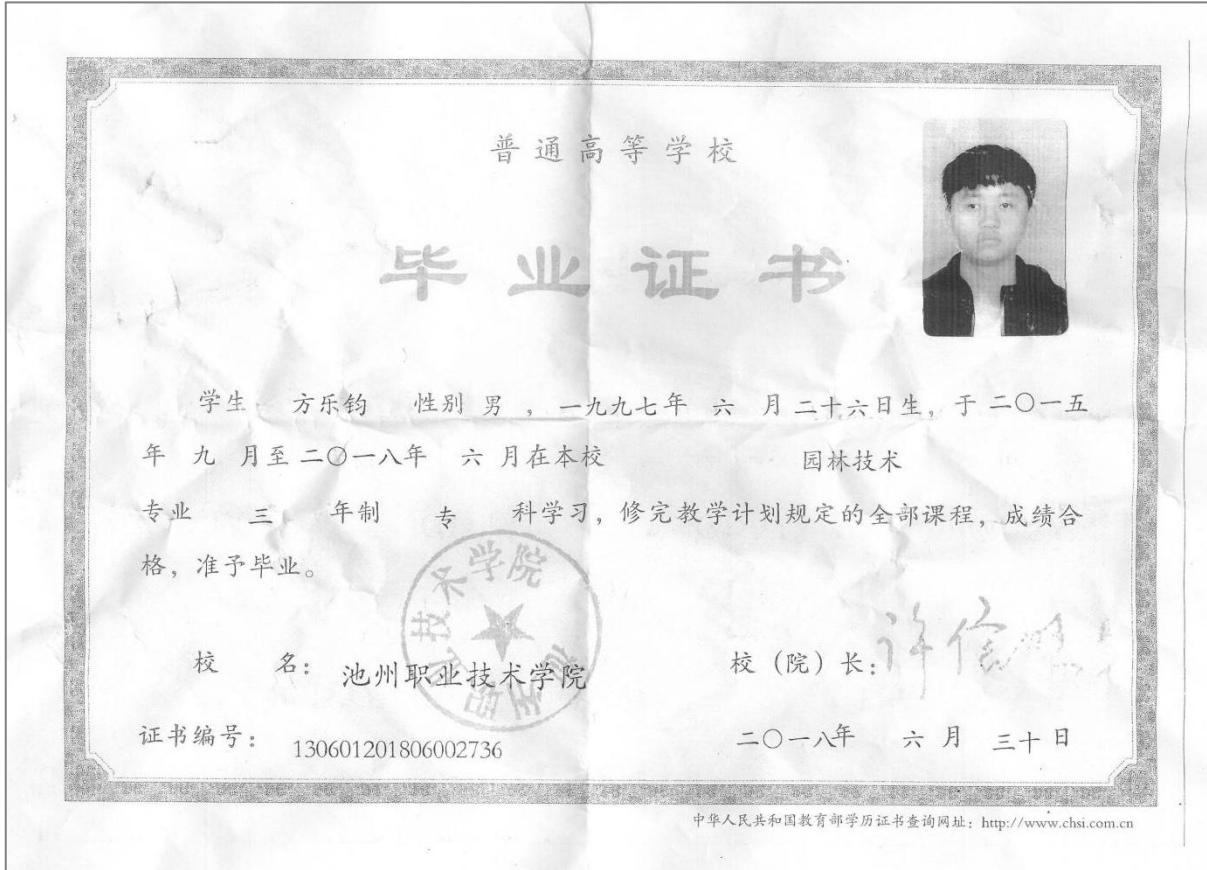 普通高等学校
毕业证书
学生 方乐钧 性别 男 ，一九九七年 六 月 二十六日生，于 二〇一五
年 九 月至 二〇一八年 六 月在本校 园林技术
专业 三 年制 专 科学习，修完教学计划规定的全部课程，成绩合
格，准予毕业。
校 名：池州职业技术学院
池州职业技术学院
校（院）长：许信
证书编号：130601201806002736
二〇一八年 六 月 三十 日
中华人民共和国教育部学历证书查询网址：http://www.chsi.com.cn